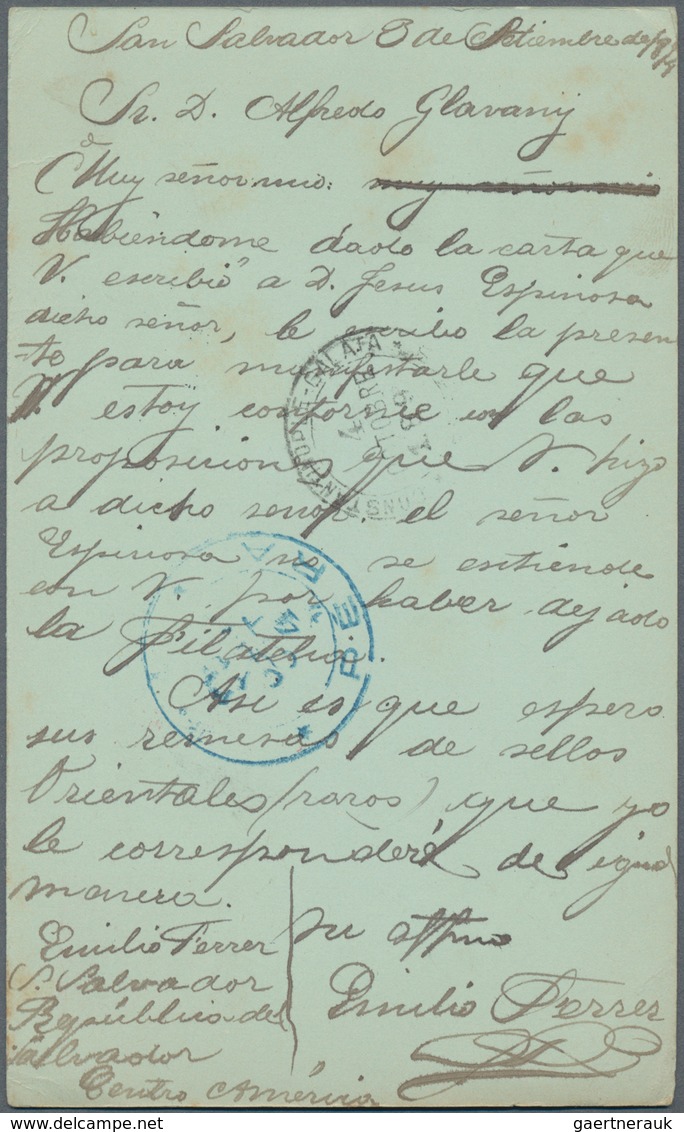 San Salvador 3 de Setiembre de 1894
Sr. D. Alfredo Glavanij
Muy señor mio: muy señor mio
Habiéndome dado la carta que
V. escribió a D. Jesus Espinosa
dicho señor, le escribo la presen-
te para manifestarle que
estoy conforme con las
proposiciones que V. hizo
a dicho señor. el señor
Espinosa no se estiénde
con V. por haber dejado
la Filatelia.
Asi es que espero
sus remesas de sellos
Orientales (raros) que yo
le corresponderé de igual
manera.
Emilio Ferrer
S. Salvador
República del
Salvador
Centro América
Su attmo
Emilio Ferrer
CONSTANTINOPLE-GALATA
4
OCTOBRE
PERA
OCT
gaertnerauk